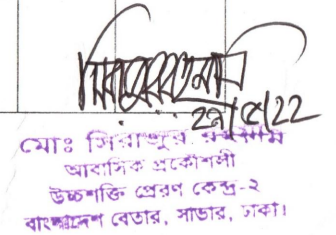 ২৭/৫/22
মোঃ সিরাজুর রহমান
আবাসিক প্রকৌশলী
উচ্চশক্তি প্রেরণ কেন্দ্র-২
বাংলাদেশ বেতার, সাভার, ঢাকা।